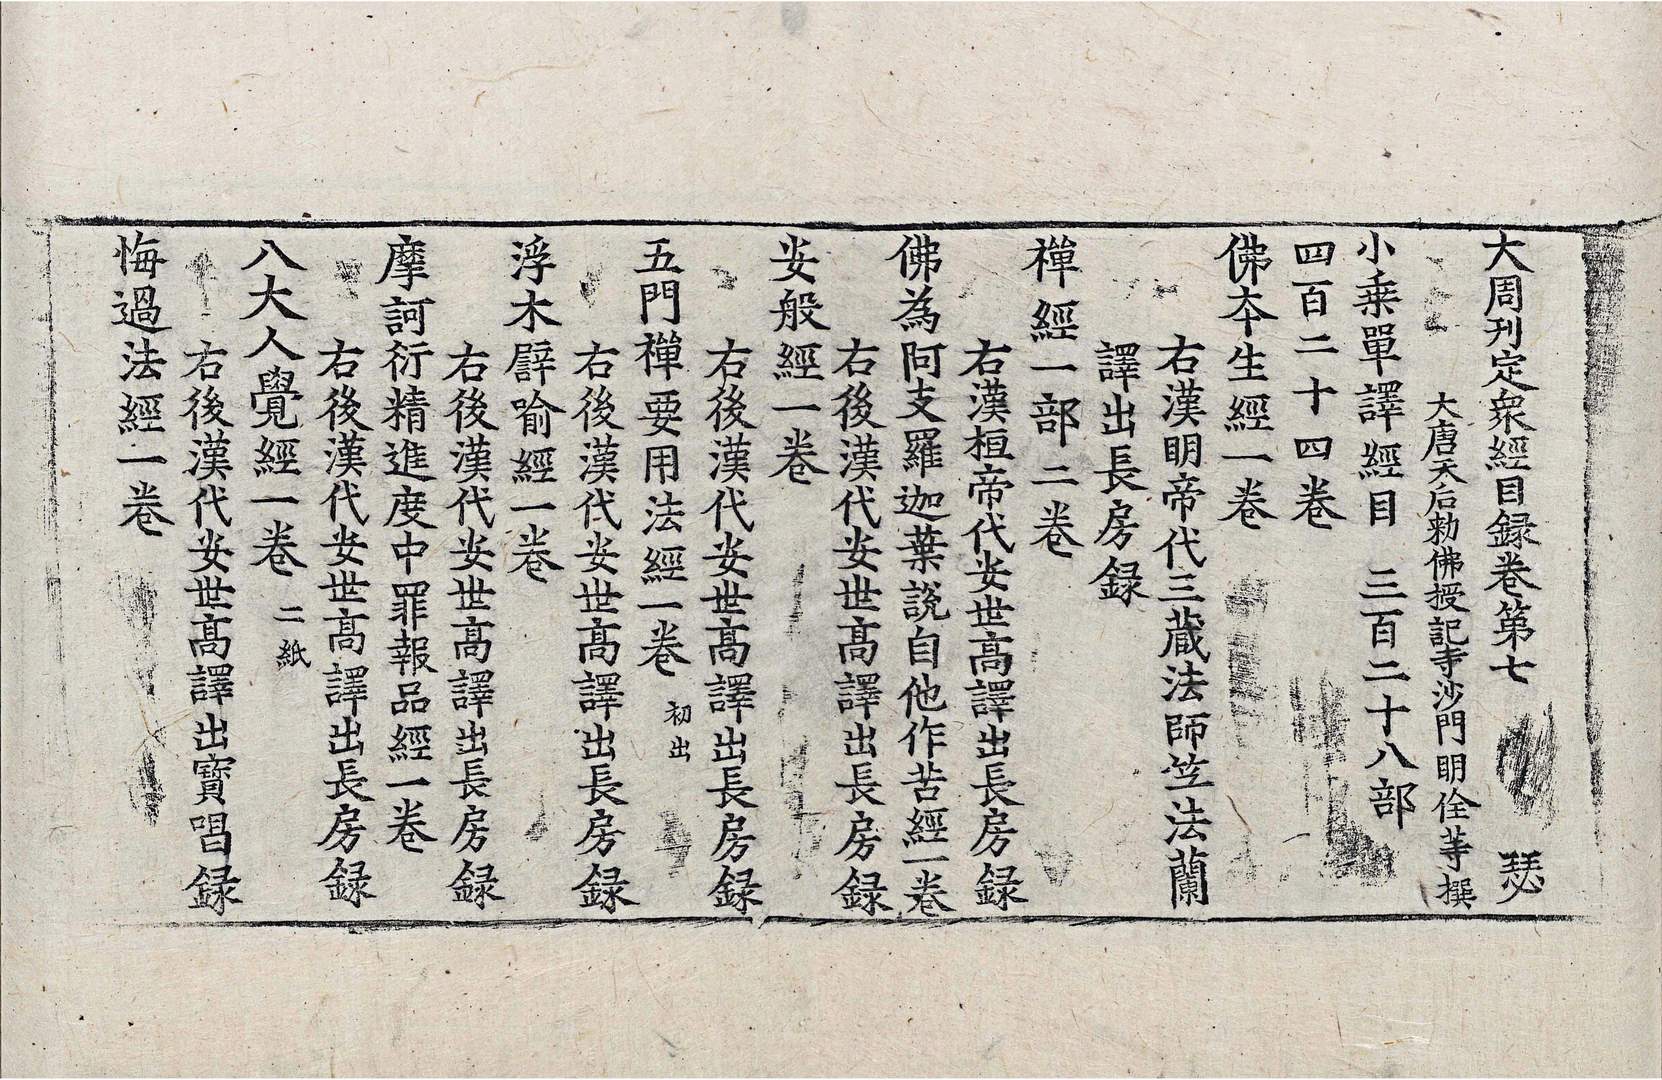 大周刊定衆經目録卷第七 瑟
大唐天后勅佛授記寺沙門明佺䓁撰
小乗單譯經目 三百二十八部
四百二十四卷
佛本生經一卷
右漢明帝代三蔵法師竺法蘭
譯出長房録
禪經一部二卷
右漢桓帝代安世髙譯出長房録
佛為阿支羅迦葉說自他作苦經一卷
右後漢代安世髙譯出長房録
安般經一卷
右後漢代安世髙譯出長房録
五門禪要用法經一卷 初出
右後漢代安世髙譯出長房録
浮木譬喻經一卷
右後漢代安世髙譯出長房録
摩訶衍精進度中罪報品經一卷
右後漢代安世髙譯出長房録
八大人覺經一卷 二紙
右後漢代安世髙譯出寶唱録
悔過法經一卷